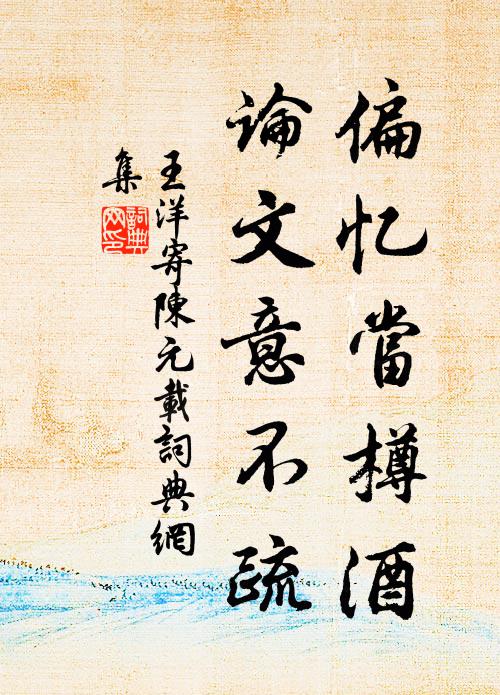 偏忆當樽酒
論文意不疏
王洋寄陳元載詞典網
集
詞典
网印